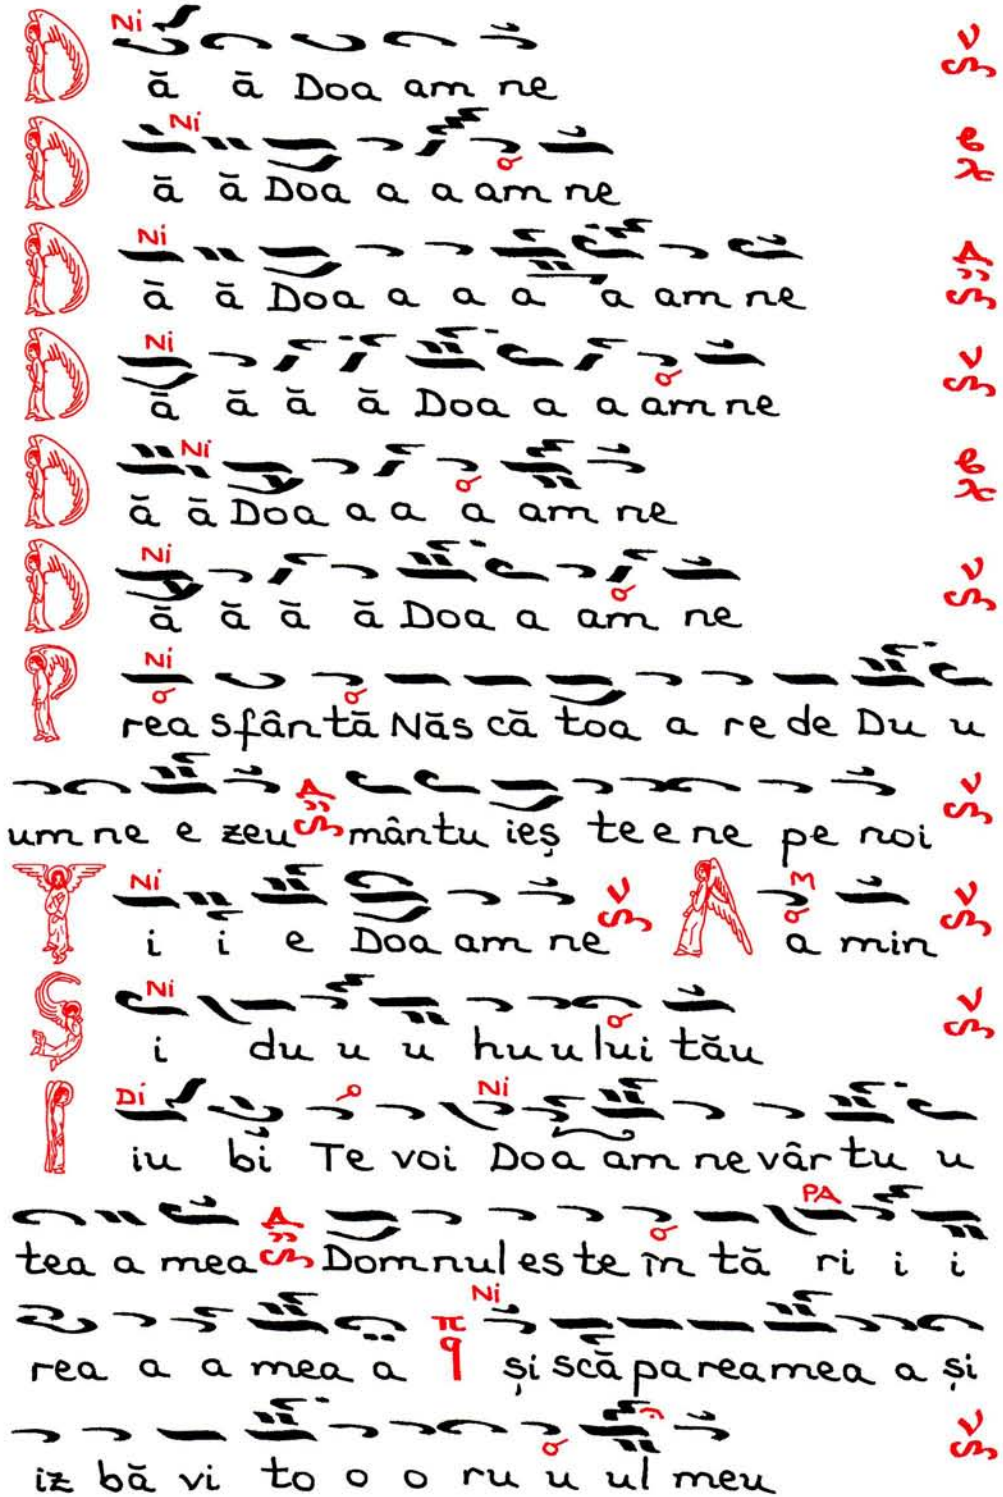 Ni
D ă ă Doa am ne
Ni
D ă ă Doa a a am ne
Ni
D ă ă Doa a a a a am ne
Ni
D ă ă ă ă Doa a a am ne
Ni
D ă ă Doa a a a am ne
Ni
D ă ă ă ă Doa a am ne
Ni
P rea sfân tă Năs că toa a re de Du u
um ne e zeu mân tu ieș te e ne pe noi
Ni
T i i e Doa am ne A a min
Ni
S i du u u hu u lui tău
Di Ni
I iu bi Te voi Doa am ne vâr tu u
PA
tea a mea Dom nul es te în tă ri i i
Ni
rea a a mea a π q și scă pa rea mea a și
iz bă vi to o o ru u ul meu